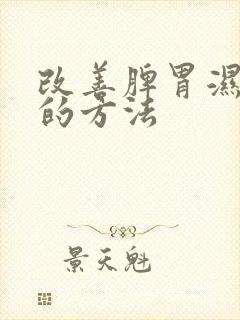 改善脾胃濕
的方法
景天魁